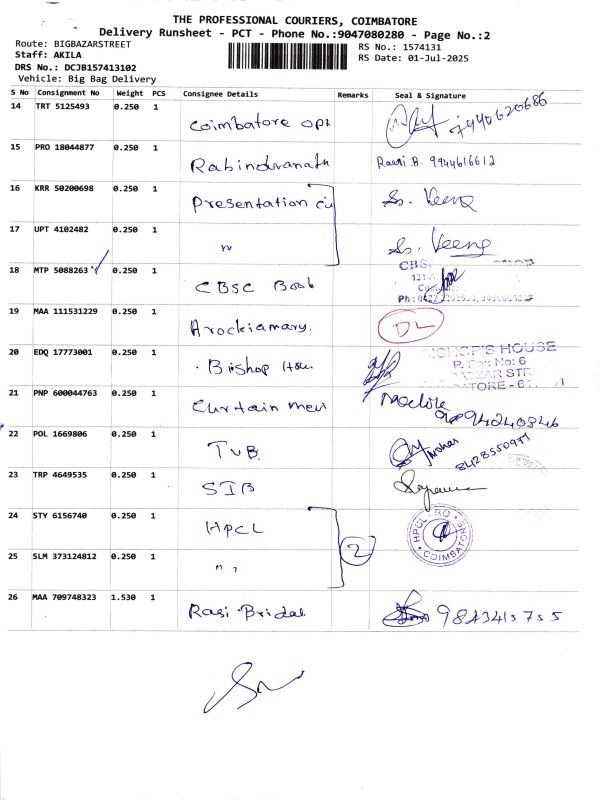 THE PROFESSIONAL COURIERS, COIMBATORE
Delivery Runsheet - PCT - Phone No.:9047080280 - Page No.:2
Route: BIGBAZARSTREET
Staff: AKILA
DRS No.: DCJB157413102
Vehicle: Big Bag Delivery
RS No.: 1574131
RS Date: 01-Jul-2025
S No Consignment No Weight PCS Consignee Details Remarks Seal & Signature
14 TRT 5125493 0.250 1 Coimbatore Opt 7940620686
15 PRO 18044877 0.250 1 Rabinduranath 9944616612
16 KRR 50200698 0.250 1 Presentation So. Veena
17 UPT 4102482 0.250 1 " So. Veena
18 MTP 5088263 0.250 1 CBSC Book
19 MAA 111531229 0.250 1 Arockiamary. DL
20 EDQ 17773001 0.250 1 Bishop BISHOP'S HOUSE
P. Box No: 6
21 PNP 600044763 0.250 1 Curtain
22 POL 1669806 0.250 1 TVB Mohan
8428550977
23 TRP 4649535 0.250 1 SIB
24 STY 6156740 0.250 1 HPCL HPCL - RO COIMBATORE
2
25 SLM 373124812 0.250 1 " "
26 MAA 709748323 1.530 1 Rasi Bridal 9843413755